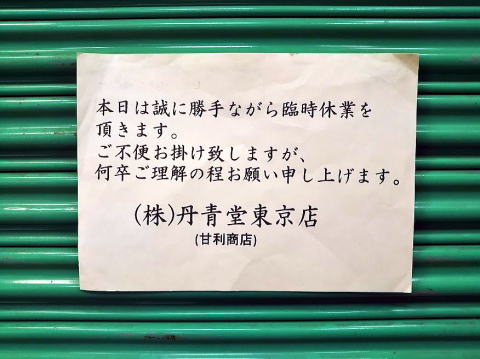 本日は誠に勝手ながら臨時休業を
頂きます。
ご不便お掛け致しますが、
何卒ご理解の程お願い申し上げます。
(株)丹青堂東京店
(甘利商店)